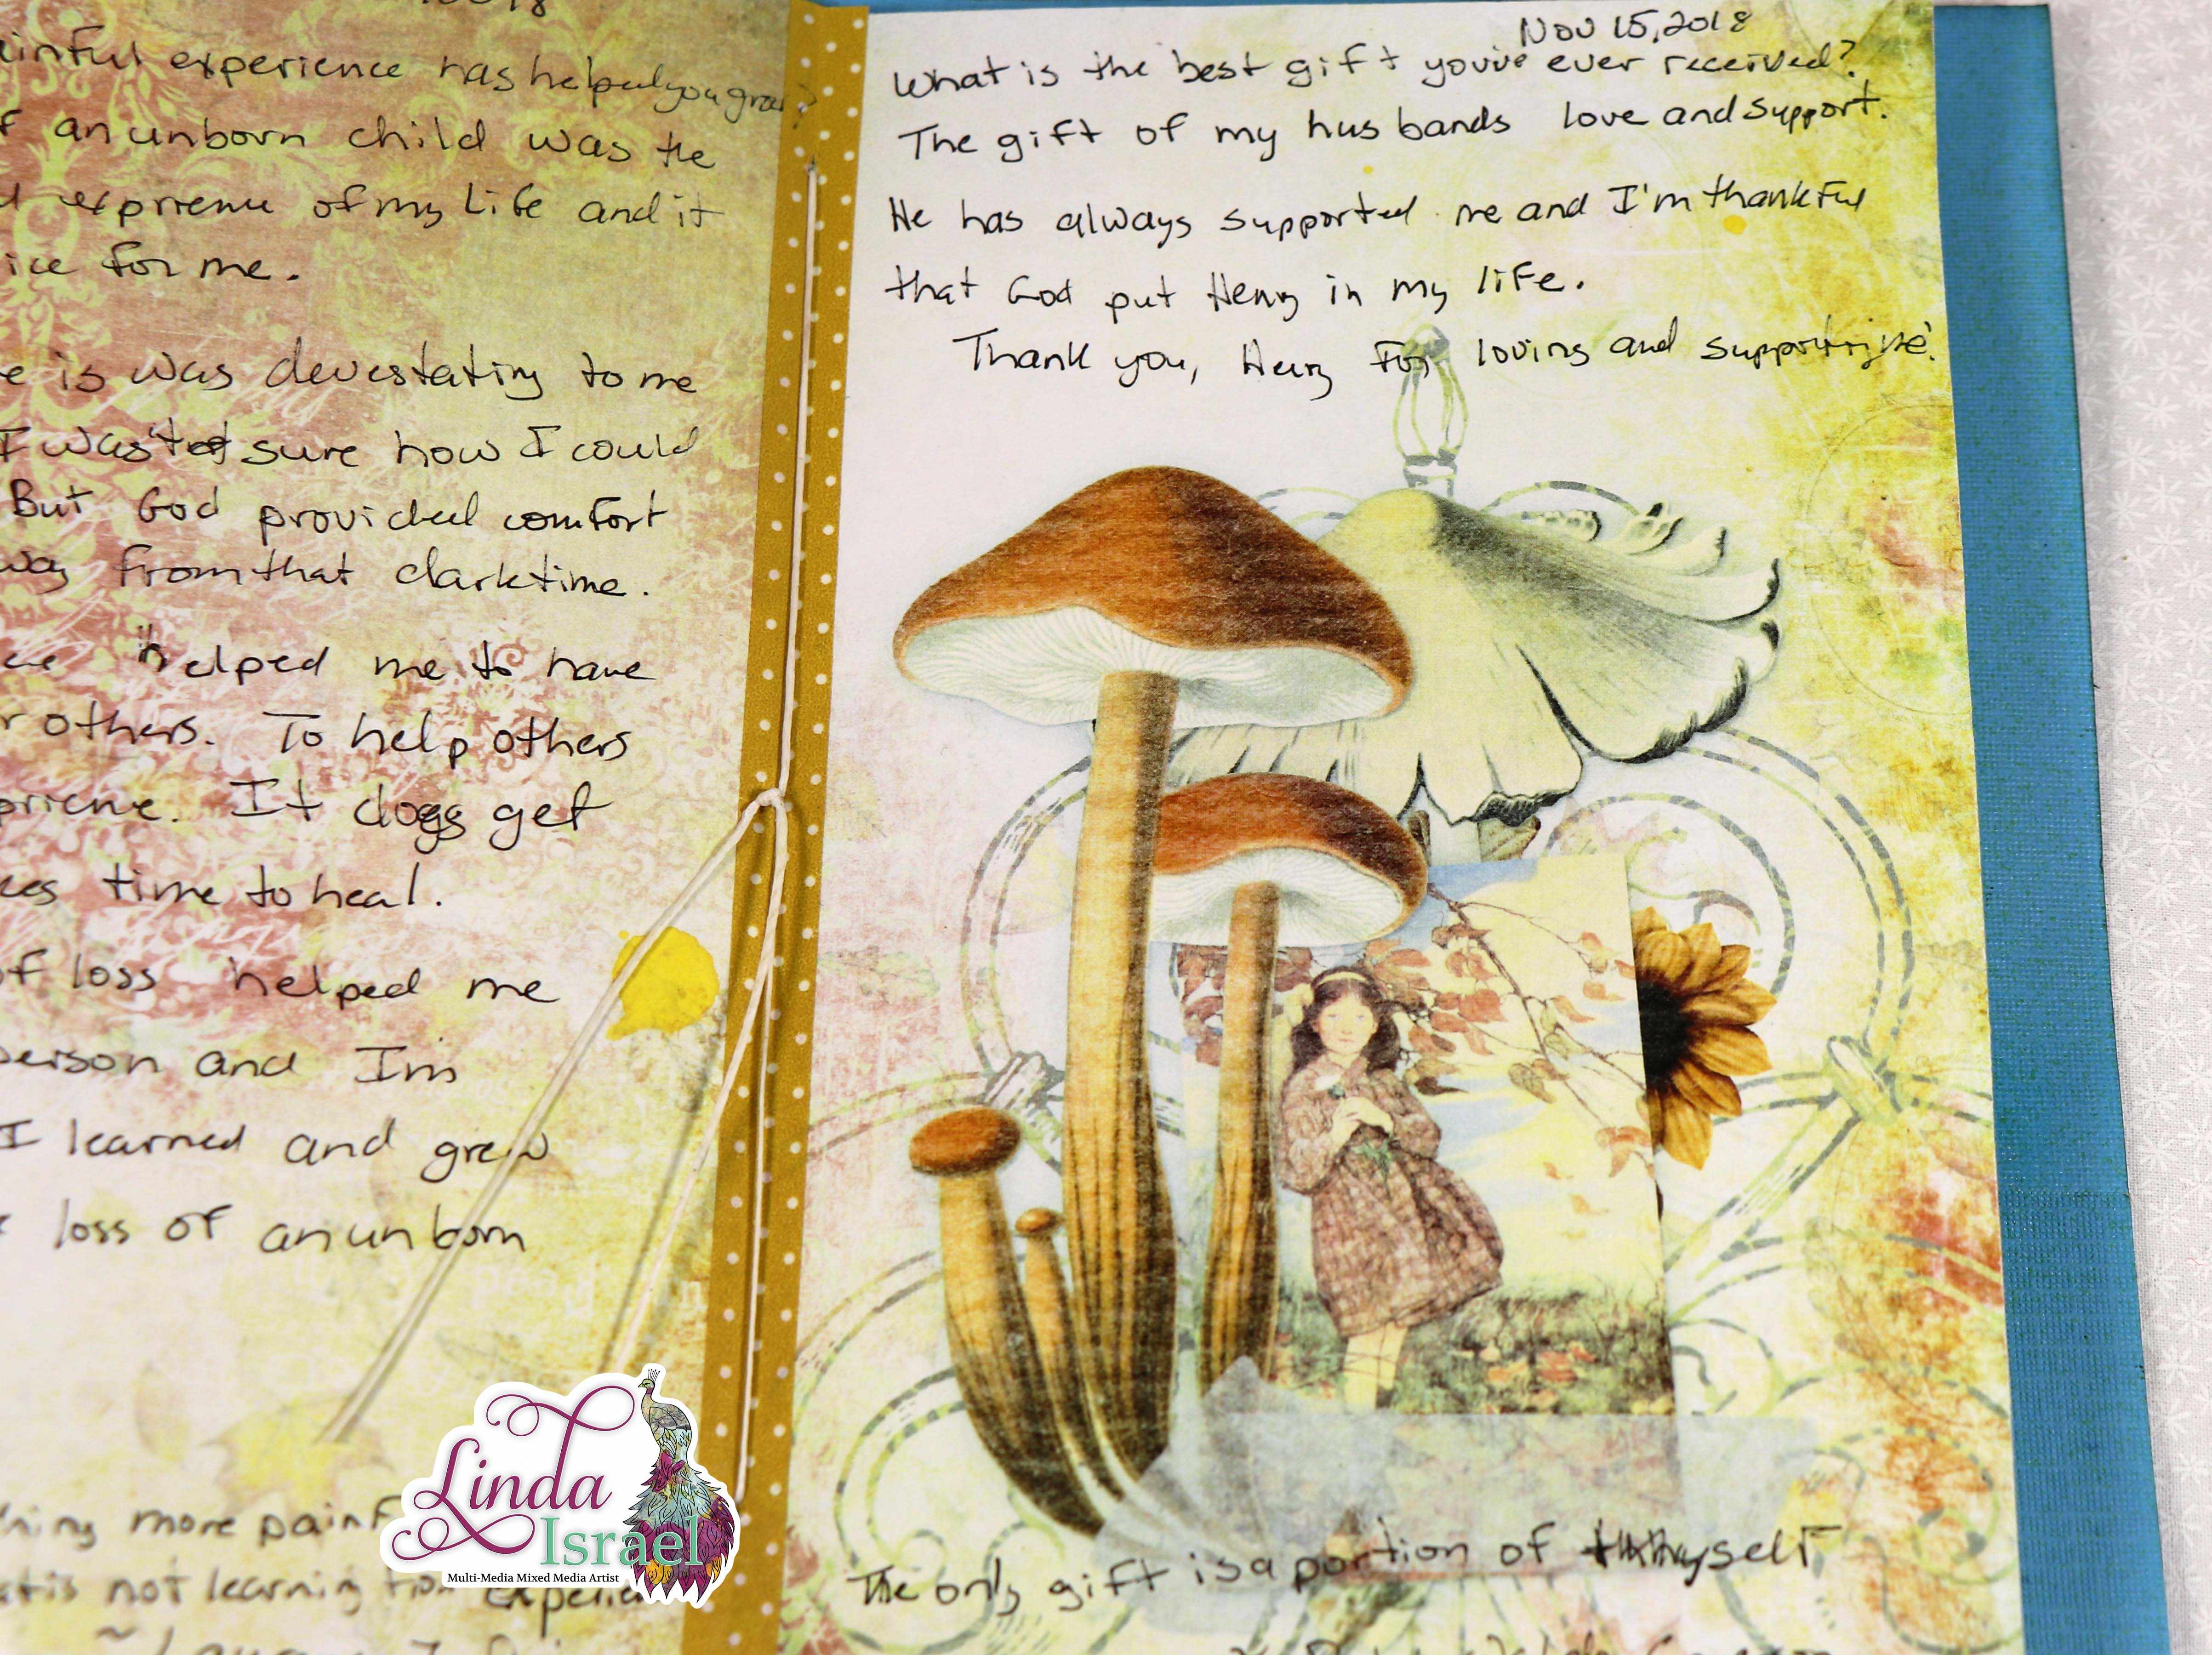 experience has helped you grow?
f an unborn child was the
exprience of my Life and it
ice for me.
e is was devestating to me
I was sure how I could
But God provided comfort
way from that dark time.
helped me to have
r others. To help others
prience. It does get
ces time to heal.
of loss helped me
person and I'm
I learned and grew
loss of an unborn
hing more painf
not learning from experien
Nov 15, 2018
What is the best gift you've ever received?
The gift of my husbands love and support.
He has always supported me and I'm thankful
that God put Henry in my life.
Thank you, Henry for loving and supporting me!
The only gift is a portion of thyself
Linda
Israel
Multi-Media Mixed Media Artist